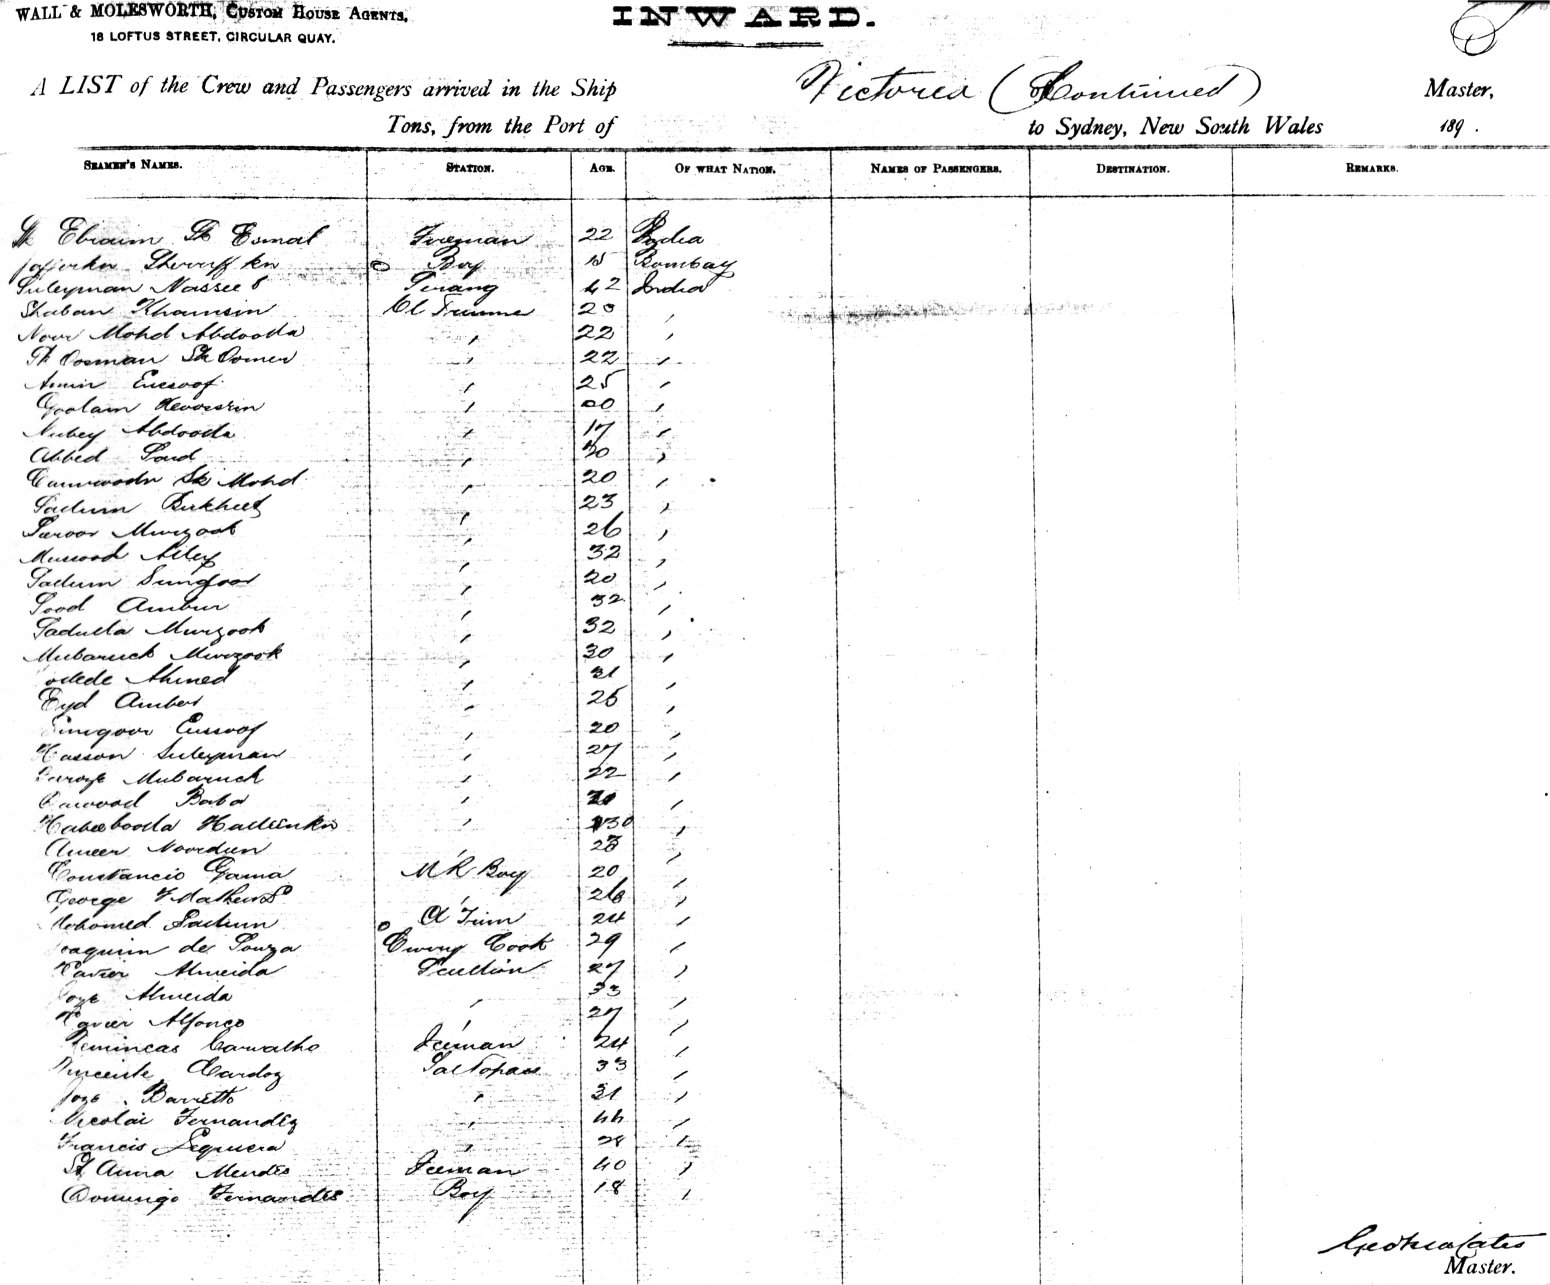 WALL & MOLESWORTH, CUSTOM HOUSE AGENTS,
18 LOFTUS STREET, CIRCULAR QUAY.
INWARD.
A LIST of the Crew and Passengers arrived in the Ship Victoria (Continued) Master,
Tons, from the Port of to Sydney, New South Wales 189 .
SEAMEN'S NAMES. STATION. AGE. OF WHAT NATION. NAMES OF PASSENGERS. DESTINATION. REMARKS.
Sk Ebraim Sk Esmal Fireman 22 India
Sherriff kn Boy 15 Bombay
Suleyman Nasseeb Serang 42 India
Shaban Khamsin Cl Trimmer 20 "
Noor Mohd Abdoola " 22 "
Sk Oosman Sk Oomer " 22 "
Amin Eusoof " 25 "
Goolam Hoossein " 20 "
Nubey Abdoola " 17 "
Abbed " 30 "
Sk Mohd " 20 "
Sadum Birkheet " 23 "
Suroor Murzook " 26 "
Mussood Alley " 32 "
Sadum Sungoor " 20 "
Sood Ambur " 32 "
Sadulla Murzook " 32 "
Mubaruck Murzook " 30 "
Ahmed " 31 "
Eyd Amber " 25 "
Sungoor Eusoof " 20 "
Hasson Suleyman " 27 "
Mubaruck " 22 "
Dawood Baba " "
Habibboola " 30 "
Ameer Noordin " 23 "
Constancio Gama M R Boy 20 "
George F Mathews " 26 "
Mohomed Sadum Cl Trim 24 "
Joaquim de Souza Cook 29 "
Xavier Almeida Scullion 27 "
Joze Almeida " 33 "
Xavier Alfonco " 27 "
Carvalho Iceman 24 "
Vincente Cardoz Topass 33 "
Joze Barretto " 31 "
Nicolai Fernandez " 44 "
Francis Sequeira " 28 "
St Anna Mendes Iceman 40 "
Domingo Fernandes Boy 18 "
Master.